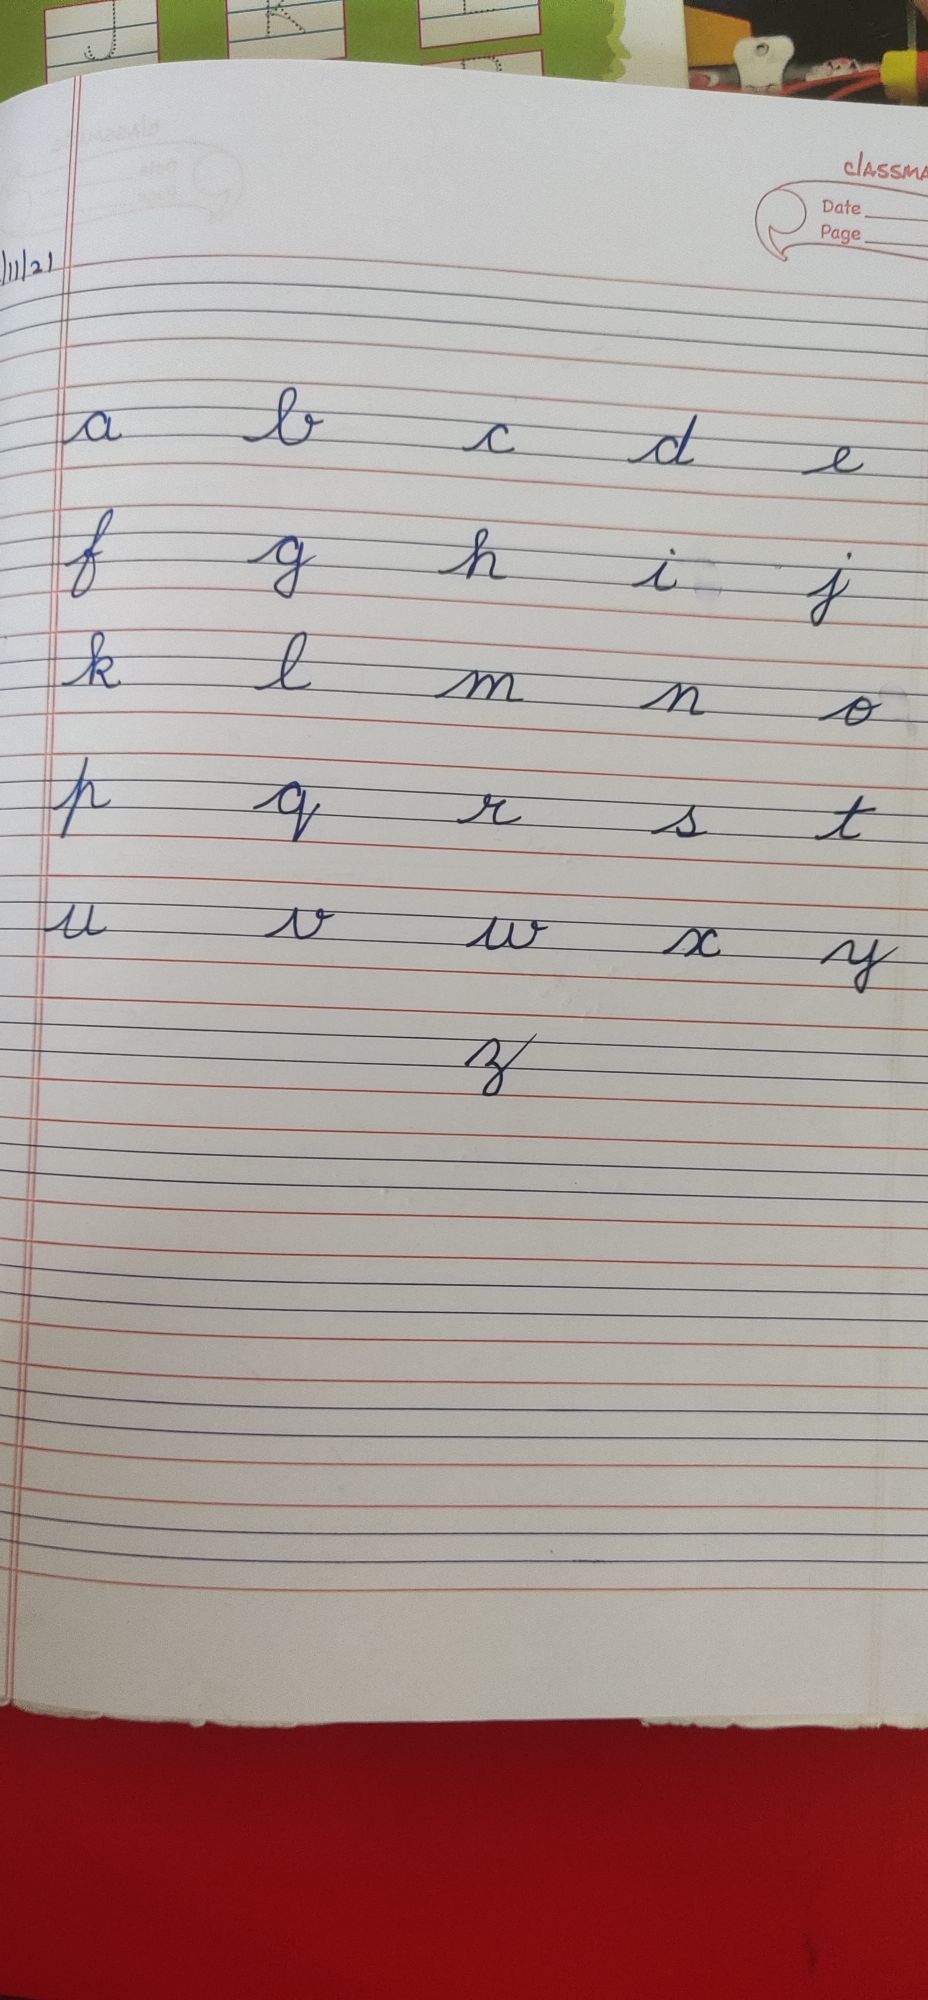 J K L
classma
Date
Page
/11/21
a b c d e
f g h i j
k l m n o
p q r s t
u v w x y
z